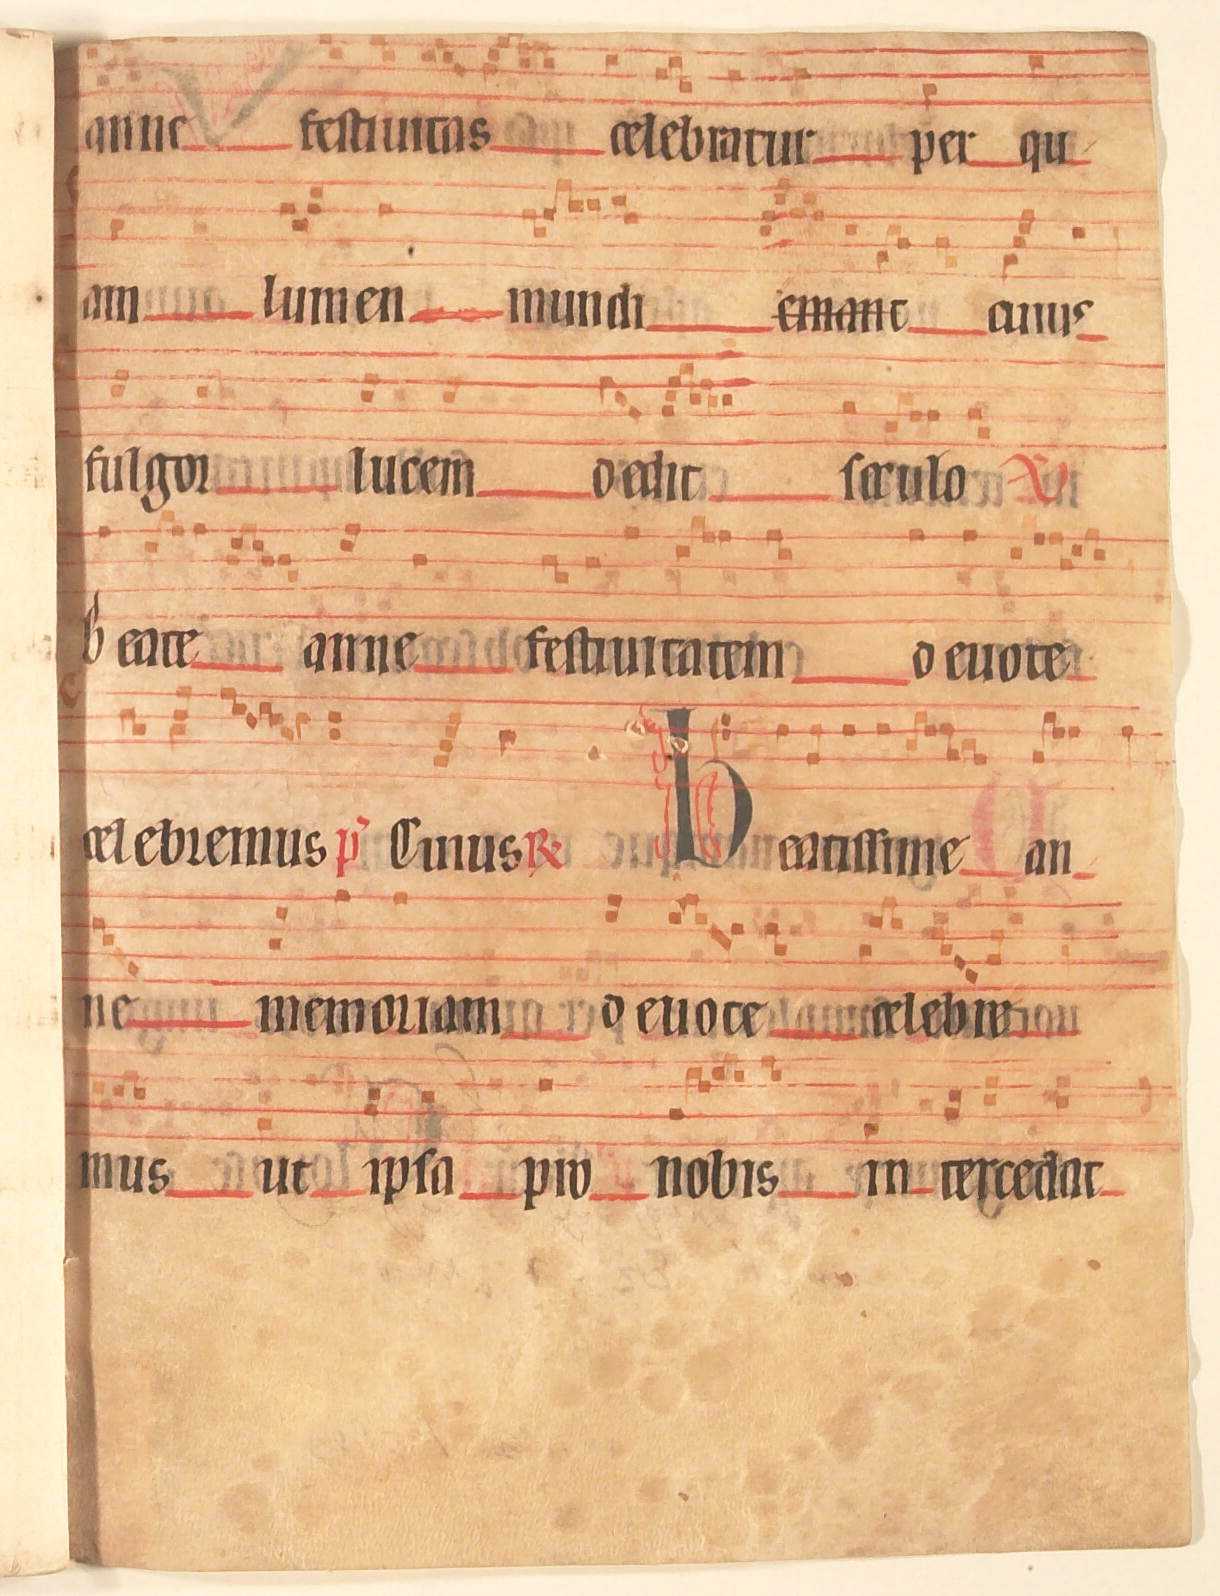 anne festiuitas celebratur per qu
am lumen mundi emanc cuius
fulgor lucem dedit seculo V
beate anne festiuitatem deuote
celebremus p Cuius R Beatissime an
ne memoriam deuote celebre
mus ut ipsa pro nobis intercedat